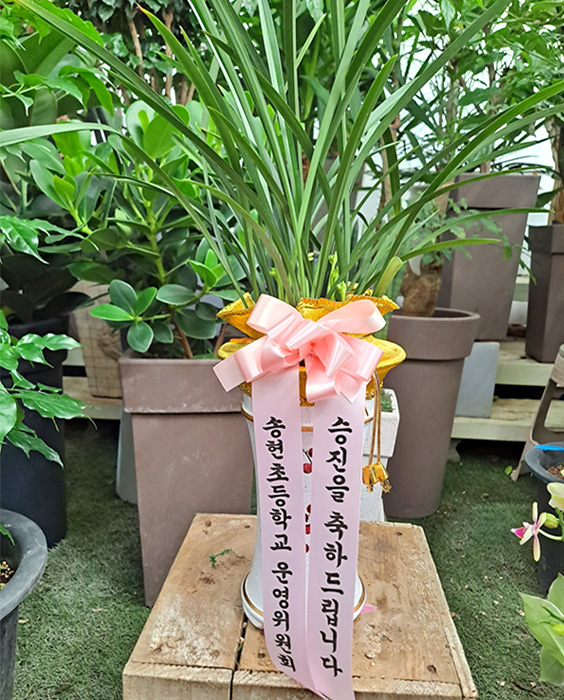 승진을 축하드립니다
송현초등학교 운영위원회